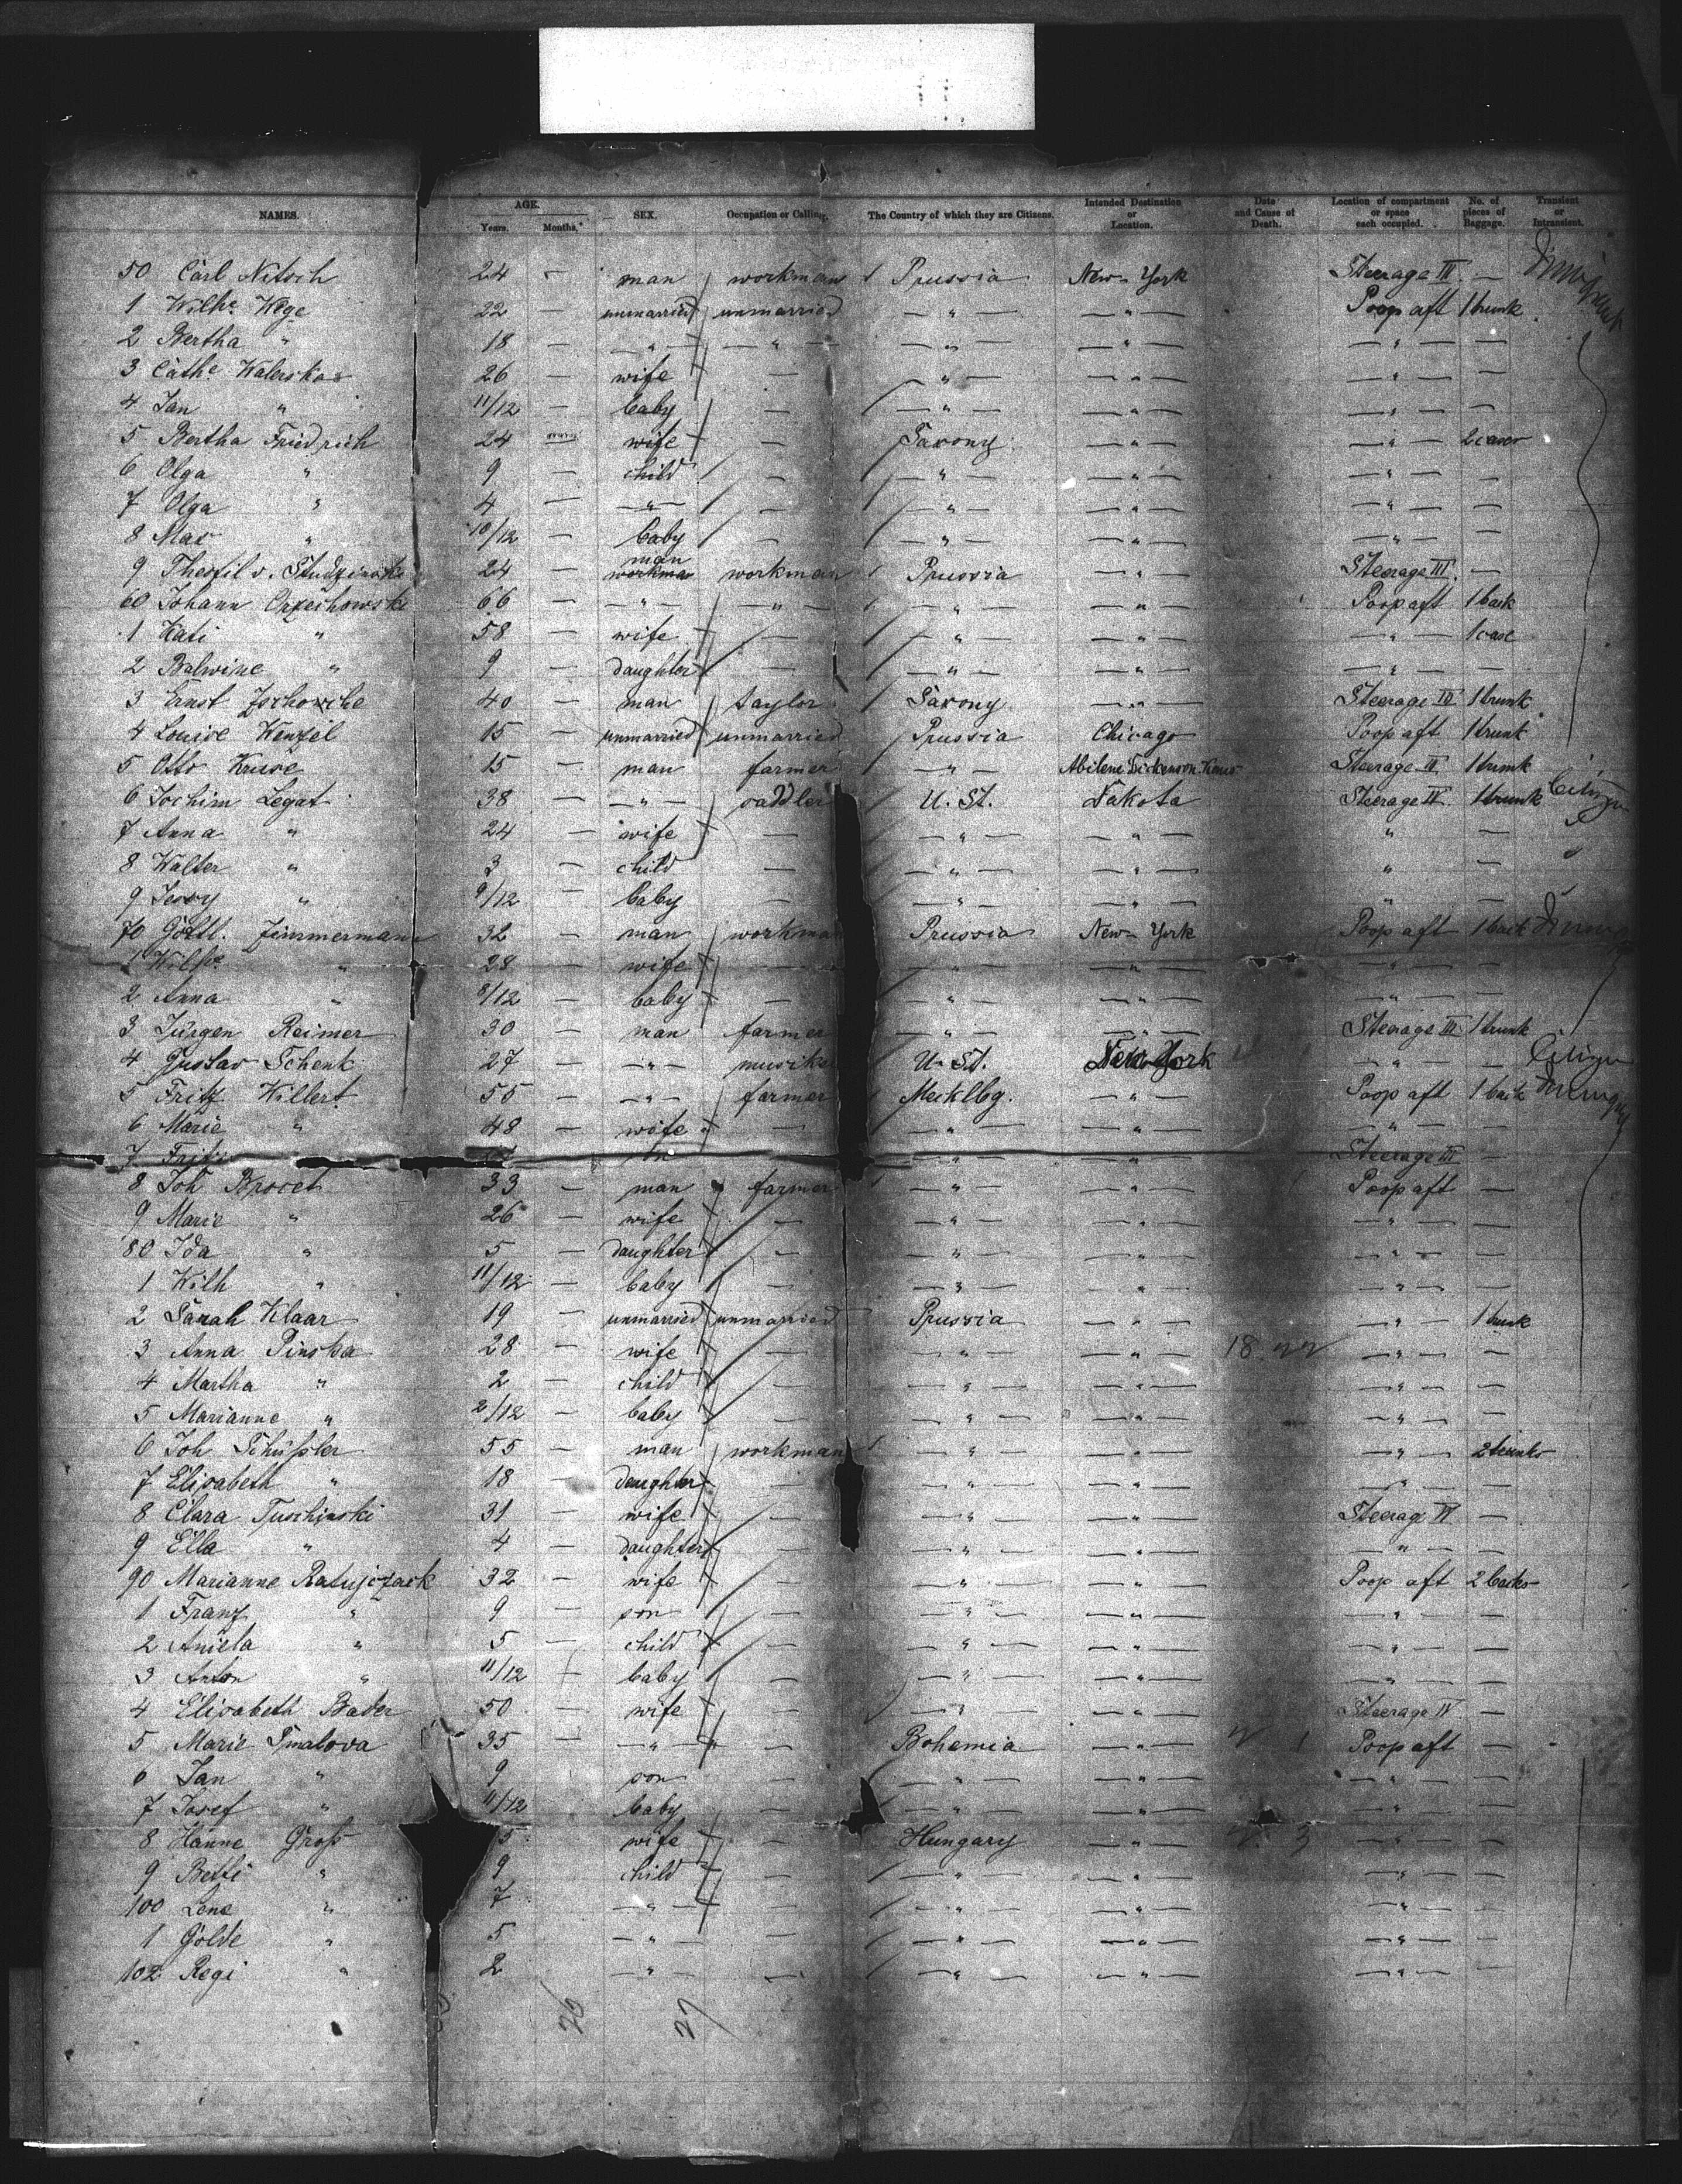 NAMES. AGE. Years. Months. SEX. Occupation or Calling. The Country of which they are Citizens. Intended Destination or Location. Date and Cause of Death. Location of compartment or space each occupied. No. of pieces of Baggage. Transient or Intransient.
50 Carl Nitsch 24 — man workman Prussia New-York Steerage III. —
1 Wilhe. Wege 22 — unmarried unmarried — " — — " — Poop aft 1 trunk
2 Bertha " 18 — — " — — " — — " — — " — — " — —
3 Cathe. Walerska 26 — wife — — " — — " — — " — —
4 Jan " 11/12 — baby — — " — — " — — " — —
5 Bertha Friedrich 24 — wife — Saxony — " — — " — 2 cases
6 Olga " 9 — child — — " — — " — — " — —
7 Olga " 4 — — " — — — " — — " — — " — —
8 Max " 10/12 — baby — — " — — " — — " — —
9 Theofil v. Studzinski 24 — man workman Prussia — " — Steerage III. —
60 Johann Orzechowski 66 — — " — — " — — " — — " — Poop aft 1 back
1 Kati " 58 — wife — — " — — " — — " — 1 case
2 Balwine " 9 — daughter — — " — — " — — " — —
3 Ernst Zschosche 40 — man taylor Saxony — " — Steerage III 1 trunk
4 Louise Wenzel 15 — unmarried unmarried Prussia Chicago Poop aft 1 trunk
5 Otto Kruse 15 — man farmer — " — Abilene Dickenson Steerage II 1 trunk
6 Jochim Legat 38 — — " — saddler U. St. Dakota Steerage II 1 trunk Citizen
7 Anna " 24 — wife — — " — — " — " —
8 Walter " 3 — child — — " — — " — " —
9 Jessy " 9/12 — baby — — " — — " — " —
70 Gottl. Zimmermann 32 — man workman Prussia New-York Poop aft 1 back
1 Wilhe. " 28 — wife — — " — — " — — " — —
2 Anna " 8/12 — baby — — " — — " — — " — —
3 Jürgen Reimer 30 — man farmer — " — — " — Steerage III 1 trunk
4 Gustav Schenk 27 — — " — U. St. New York — " — — Citizen
5 Fritz Willert 55 — — " — farmer Mecklbg. — " — Poop aft 1 back
6 Marie " 48 — wife — — " — — " — — " — —
7 — " — — " — Steerage III —
8 Joh 33 — man farmer — " — — " — Poop aft —
9 Marie " 26 — wife — — " — — " — — " — —
80 Ida " 5 — daughter — — " — — " — — " — —
1 Wilh " 11/12 — baby — — " — — " — — " — —
2 Sarah Klaar 19 — unmarried unmarried Prussia — " — — " — 1 trunk
3 Anna Pinska 28 — wife — — " — — " — 18 — " — —
4 Martha " 2 — child — — " — — " — — " — —
5 Marianne " 2/12 — baby — — " — — " — — " — —
6 Joh Schüssler 55 — man workman — " — — " — — " — 2 trunks
7 Elisabeth " 18 — daughter — — " — — " — — " — —
8 Clara Tuschinski 31 — wife — — " — — " — Steerag IV —
9 Ella " 4 — daughter — — " — — " — — " — —
90 Marianne Ratujczack 32 — wife — — " — — " — Poop aft 2 backs
1 Franz " 9 — son — — " — — " — — " — —
2 Aniela " 5 — child — — " — — " — — " — —
3 Anton " 11/12 — baby — — " — — " — — " — —
4 Elisabeth Bader 50 — wife — — " — — " — Steerage IV —
5 Marie Smalova 35 — — " — — Bohemia — " — 1 Poop aft —
6 Jan " 9 son — — " — — " — — " — —
7 Josef " 11/12 baby — — " — — " — — " — —
8 Hanne Gross wife — Hungary — " — 3 — " — —
9 Betti " 9 child — — " — — " — — " — —
100 Lene " 7 — " — — — " — — " — — " — —
1 Golde " 5 — " — — — " — — " — — " — —
102 Regi " 2 — " — — — " — — " — — " — —
26 27